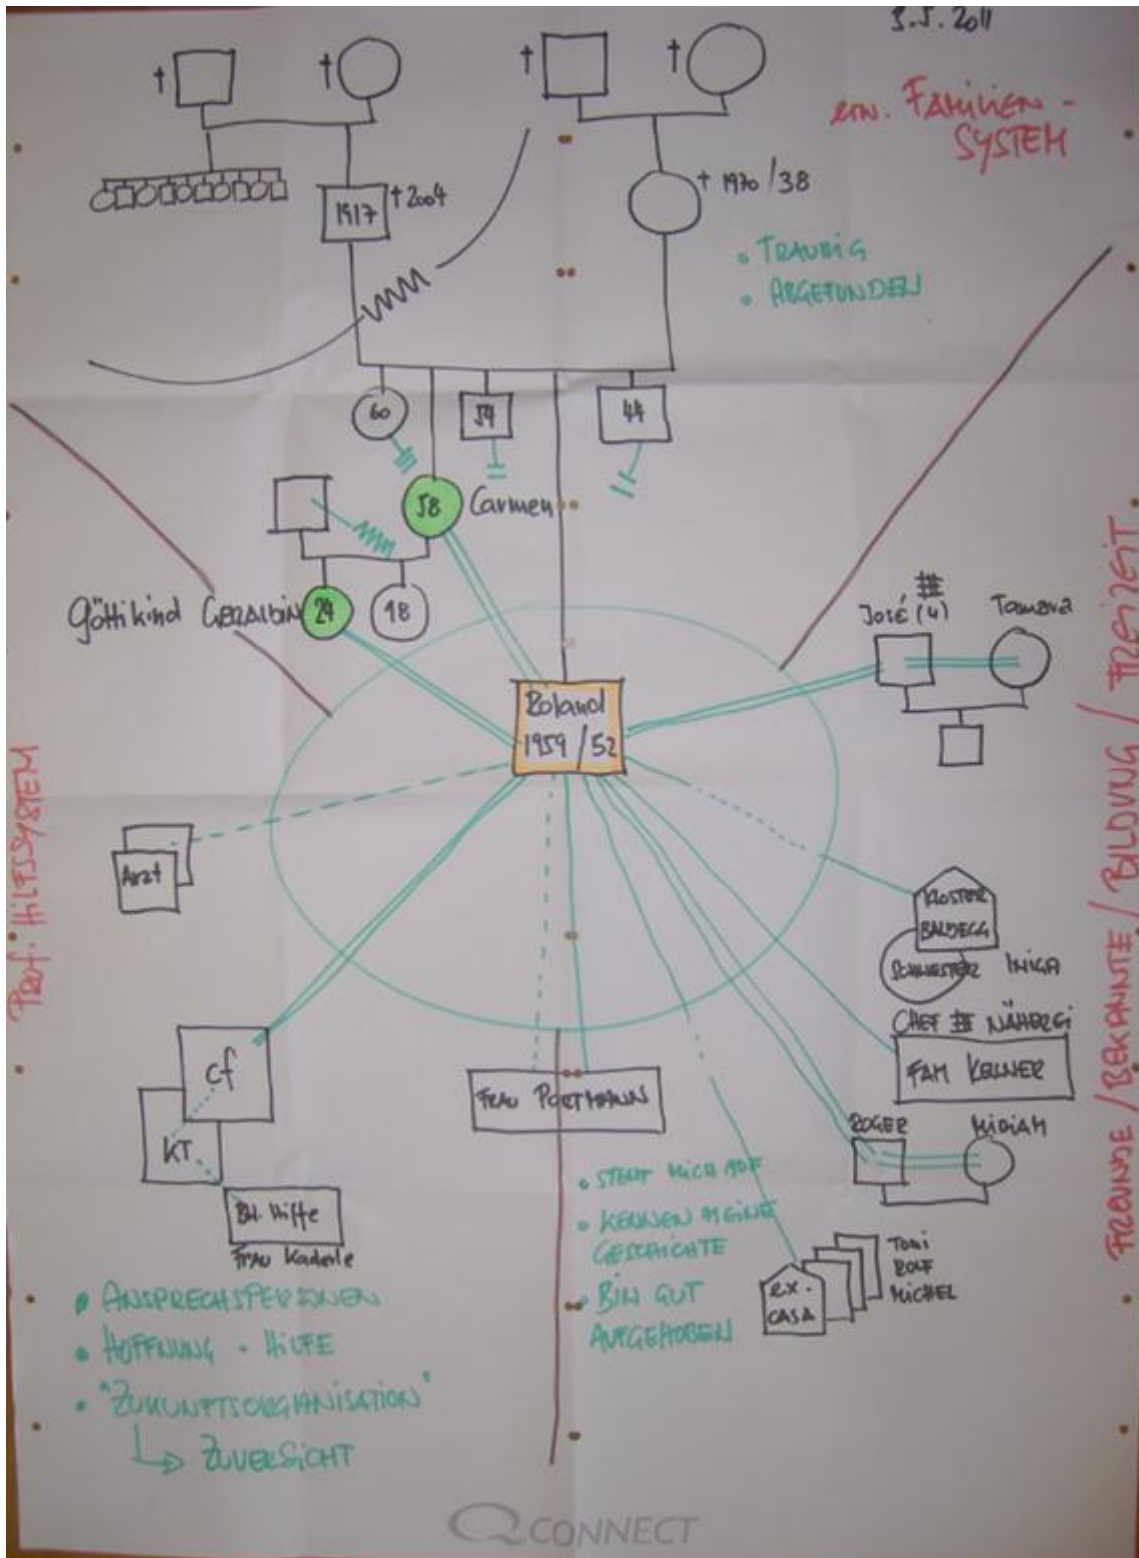 3.5. 2011
erw. FAMILIEN-
SYSTEM
1917
† 2004
† 1970 / 38
• TRAURIG
• ABGEFUNDEN
60
54
44
58
Carmen
Göttikind GERALDIN
24
18
José (4)
Tamara
Roland
1959 / 52
Prof. HILFSSYSTEM
FREUNDE / BEKANNTE / BILDUNG / FREIZEIT
Arzt
KLOSTER
BALDEGG
SCHWESTER INIGA
CHEF NÄHEREI
FAM KELLNER
cf
KT
Frau PORTMANN
ROGER
MIRIAM
Bew. Hilfe
Frau Kaderle
• STELLT MICH AUF
• KENNEN MEINE
GESCHICHTE
• BIN GUT
AUFGEHOBEN
ex.
CASA
Toni
ROLF
MICHEL
• ANSPRECHSPERSONEN
• HOFFNUNG • HILFE
• "ZUKUNFTSORGANISATION"
ZUVERSICHT
QCONNECT